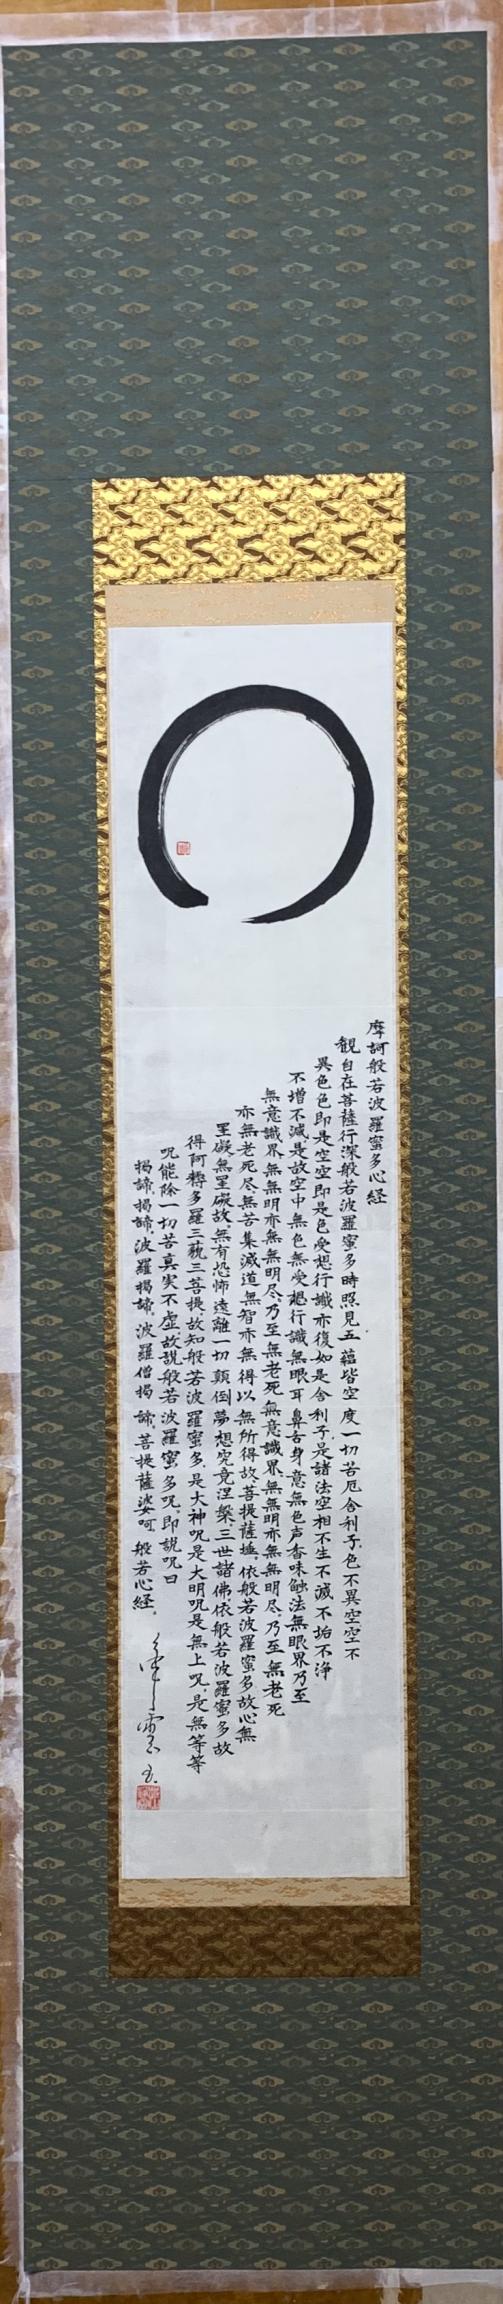 摩訶般若波羅蜜多心経
観自在菩薩行深般若波羅蜜多時照見五蘊皆空度一切苦厄舎利子色不異空空不
異色色即是空空即是色受想行識亦復如是舎利子是諸法空相不生不滅不垢不浄
不増不減是故空中無色無受想行識無眼耳鼻舌身意無色声香味触法無眼界乃至
無意識界無無明亦無無明尽乃至無老死無意識界無無明亦無無明尽乃至無老死
亦無老死尽無苦集滅道無智亦無得以無所得故菩提薩埵依般若波羅蜜多故心無
罣礙無罣礙故無有恐怖遠離一切顛倒夢想究竟涅槃三世諸佛依般若波羅蜜多故
得阿耨多羅三藐三菩提故知般若波羅蜜多是大神呪是大明呪是無上呪是無等等
呪能除一切苦真実不虚故説般若波羅蜜多呪即説呪曰
揭諦揭諦波羅揭諦波羅僧揭諦菩提薩婆呵般若心経